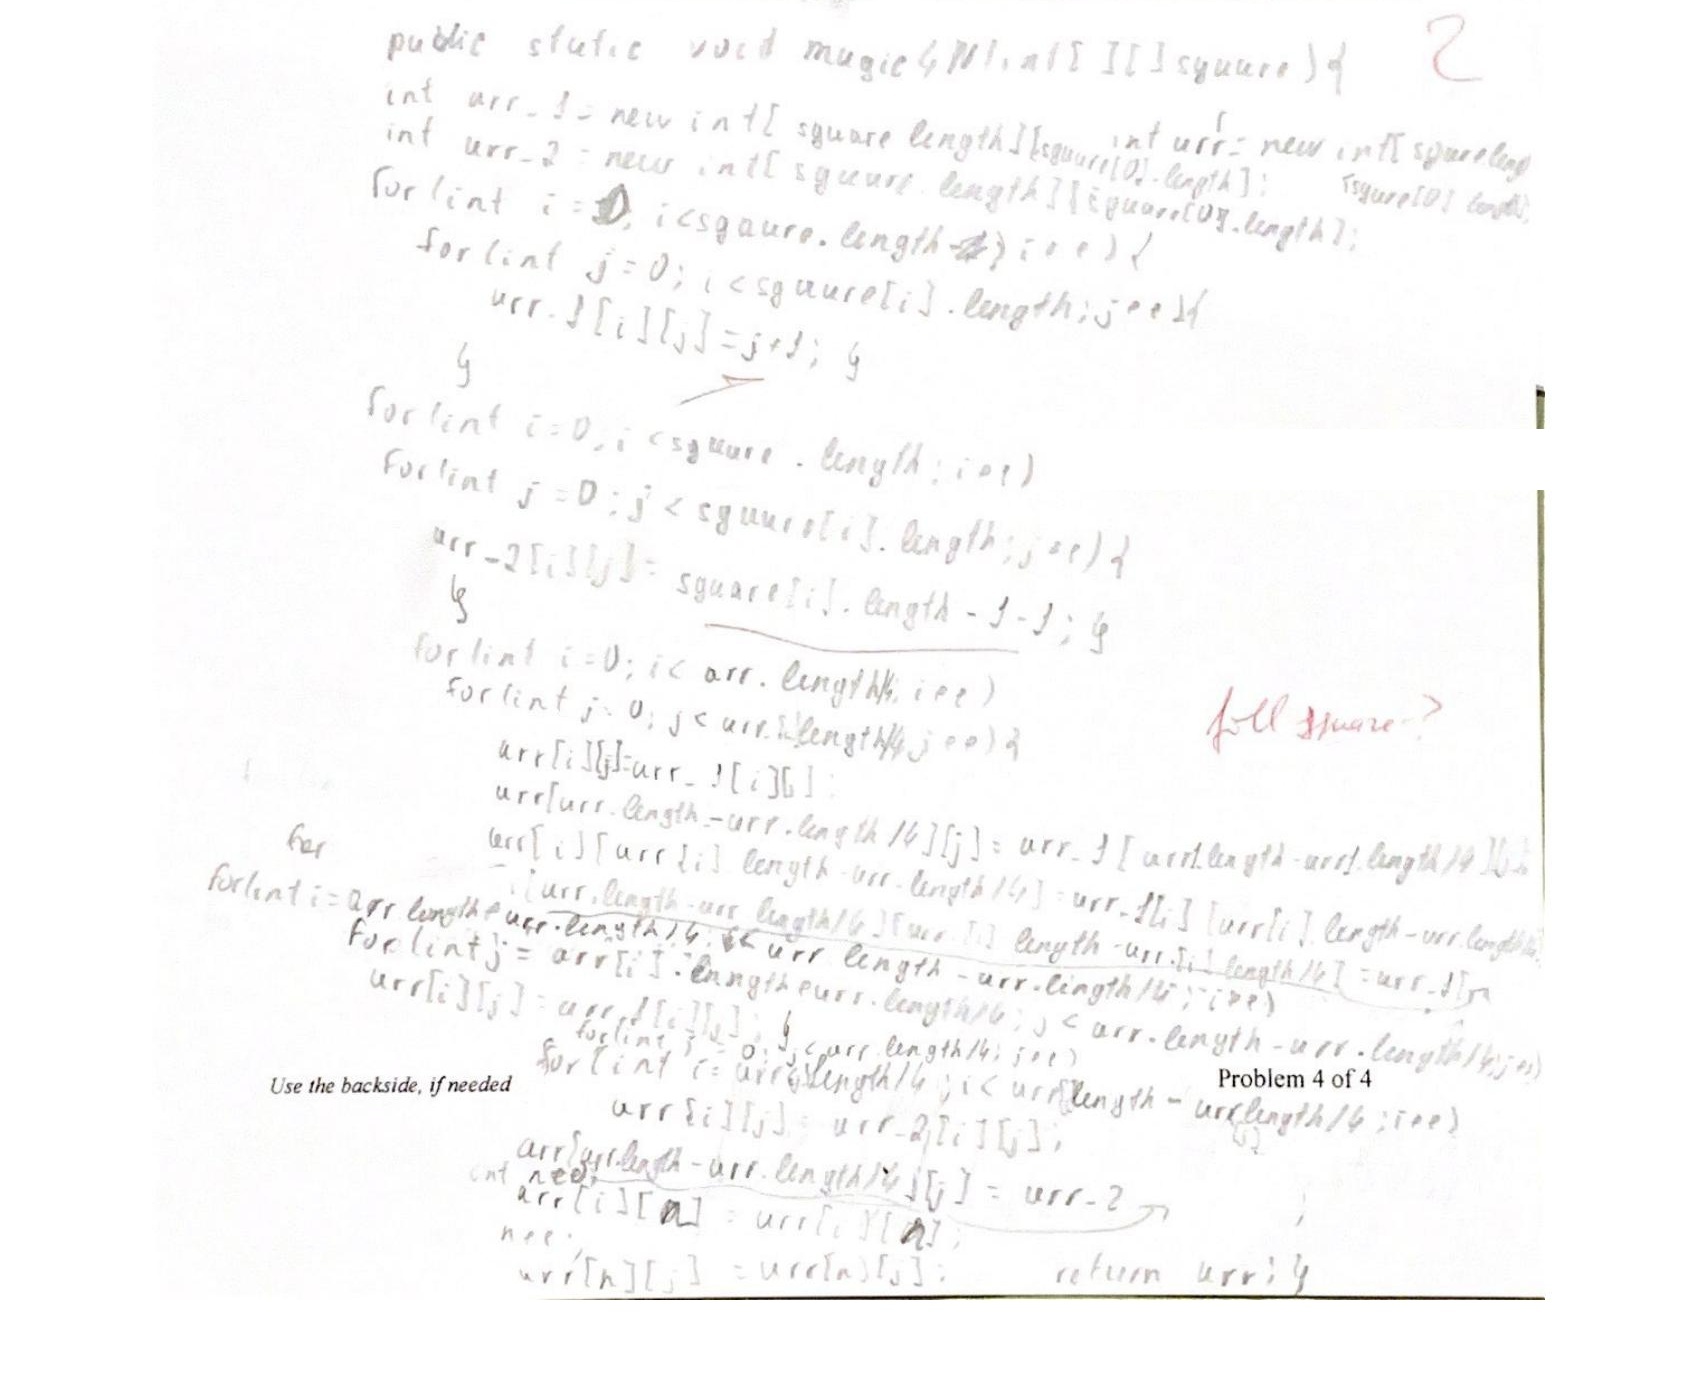 public static void magic4N(int[][] square){ 2
int arr_1 = new int[square length][square[0].length]; int arr = new int[square leng
int arr_2 = new int[square.length][square[0].length]; [square[0] length];
for(int i=0; i<sqaure.length; i++){
for(int j=0; i<square[i].length; j++){
arr_1[i][j]=j+1; }
}
for(int i=0; i<square.length; i++)
for(int j=0; j<square[i].length; j++){
arr_2[i][j]= square[i].length-1-1; }
}
for(int i=0; i< arr.length/4; i++)
for(int j=0; j< arr.length/4; j++){
full square?
arr[i][j]=arr_1[i][j];
arr[arr.length-arr.length/4][j]= arr_1[arr1.length-arr1.length/4][j];
arr[i][arr[i].length-arr.length/4]=arr_1[i][arr[i].length-arr.length/4
[arr.length-arr length/4][arr.[i] length-arr.[i] length/4]=arr_1[
for
for(int i=arr.length+arr.length/4; i< arr length-arr.length/4; i++)
for(int j= arr[i].lnngth+arr.length/4; j< arr.length-arr.length/4; j++)
arr[i][j]=arr_1[i][j]; }
for(int j=0; j<arr.length/4; j++)
for(int i=arr.length/4; i< arr.length-arr.length/4; i++)
Use the backside, if needed Problem 4 of 4
arr[i][j]= arr_2[i][j];
arr[arr.length-arr.length/4][j]= arr_2
int n=0;
arr[i][n]=arr[i][n];
n++;
arr[n][j]=arr[n][j]; return arr; }